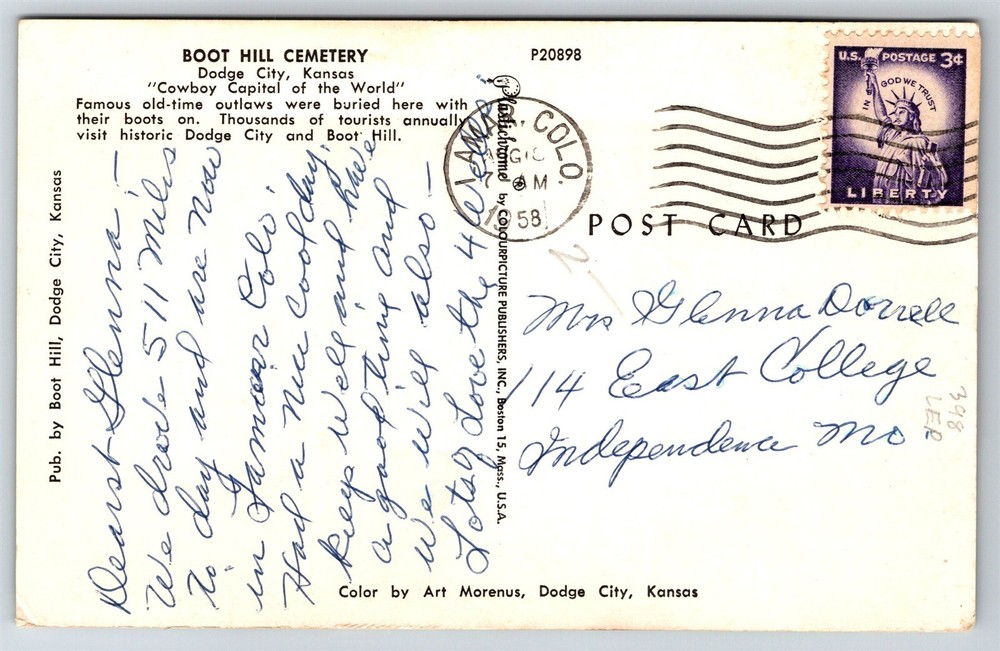 BOOT HILL CEMETERY
Dodge City, Kansas
"Cowboy Capital of the World"
Famous old-time outlaws were buried here with
their boots on. Thousands of tourists annually
visit historic Dodge City and Boot Hill.
P20898
Pub. by Boot Hill, Dodge City, Kansas
Dearst Glenna —
We drove 511 Miles
to day and are now
in Lamarr Colo
Had a nice cool day.
Keep well and have
a good time and
We will also —
Lots of Love the 4
Plastichrome ® by COLOURPICTURE PUBLISHERS, INC., Boston 15, Mass., U.S.A.
LAMAR, COLO.
AUG 18
7 AM
1958
U.S. POSTAGE 3¢
IN GOD WE TRUST
LIBERTY
POST CARD
2
Mrs Glenna Dorrell
114 East College
Independence Mo
398
LER
Color by Art Morenus, Dodge City, Kansas